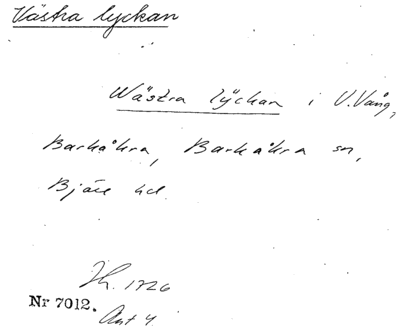 Västra lyckan
Wästra lÿckan i V. Vång,
Barkåkra, Barkåkra sn,
Bjäre hd.
Jh. 1726
Nr 7012.
Akt 4